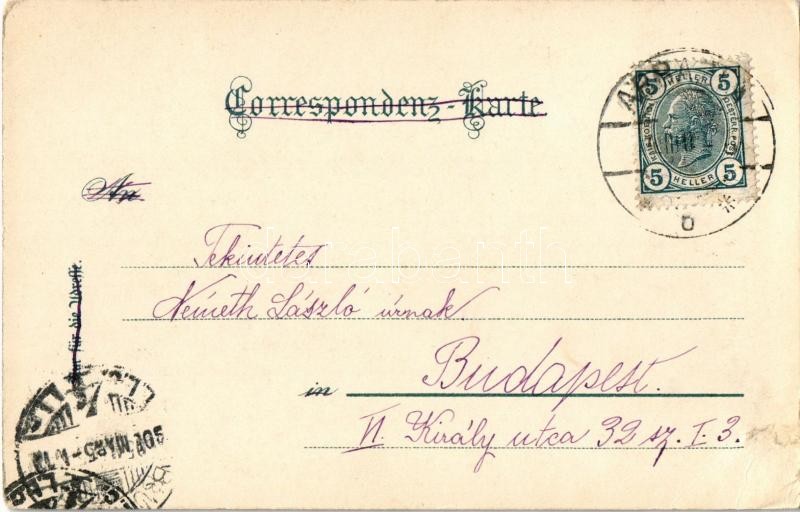 Correspondenz-Karte
5 HELLER 5
OESTERR. POST
5 HELLER 5
b
An
Tekintetes
Németh László úrnak.
Nur für die Adresse.
in Budapest.
VI. Király utca 32 sz. I. 3.
darabanth